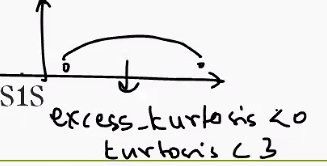 S1S
excess_kurtosis <0
kurtosis <3